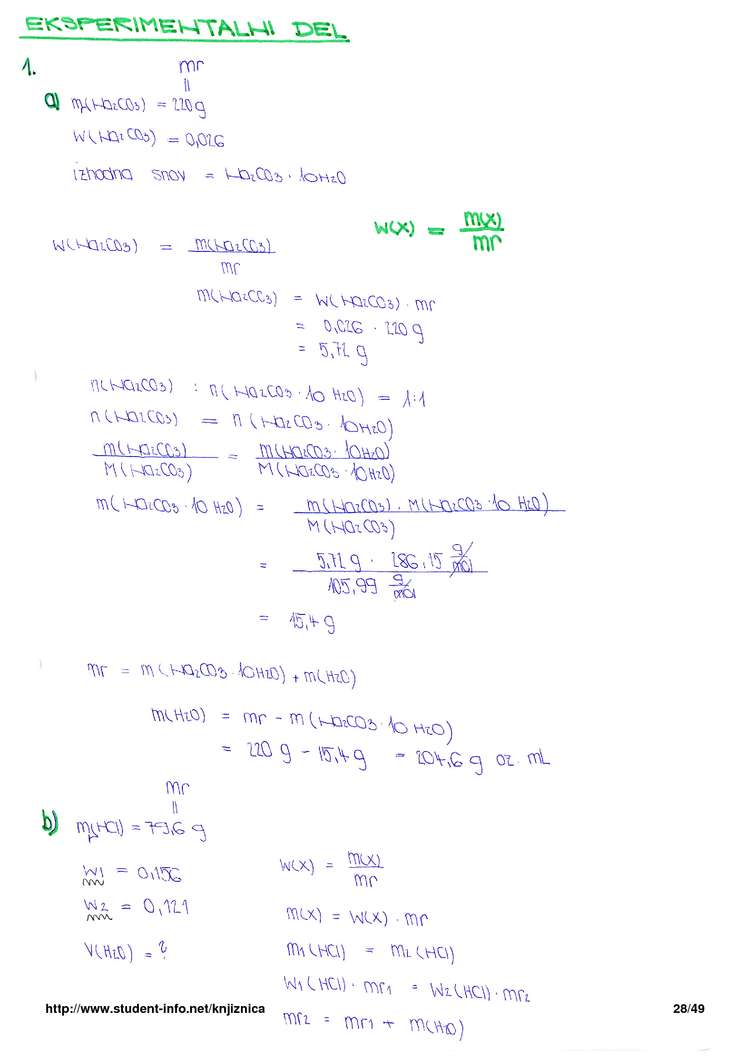 EKSPERIMENTALNI DEL
1.
mr
||
a) m(Na2CO3) = 220g
w(Na2CO3) = 0,026
izhodna snov = Na2CO3 · 10H2O
w(X) = m(X) / mr
w(Na2CO3) = m(Na2CO3) / mr
m(Na2CO3) = w(Na2CO3) · mr
= 0,026 · 220 g
= 5,72 g
n(Na2CO3) : n(Na2CO3 · 10 H2O) = 1:1
n(Na2CO3) = n(Na2CO3 · 10H2O)
m(Na2CO3) / M(Na2CO3) = m(Na2CO3 · 10H2O) / M(Na2CO3 · 10H2O)
m(Na2CO3 · 10 H2O) = m(Na2CO3) · M(Na2CO3 · 10 H2O) / M(Na2CO3)
= 5,72 g · 286,15 g/mol / 105,99 g/mol
= 15,4 g
mr = m(Na2CO3 · 10H2O) + m(H2O)
m(H2O) = mr - m(Na2CO3 · 10 H2O)
= 220 g - 15,4 g = 204,6 g oz. mL
mr
||
b) m(HCl) = 79,6 g
w1 = 0,156
w2 = 0,121
V(H2O) = ?
w(X) = m(X) / mr
m(X) = w(X) · mr
m1(HCl) = m2(HCl)
w1(HCl) · mr1 = w2(HCl) · mr2
mr2 = mr1 + m(H2O)
http://www.student-info.net/knjiznica
28/49